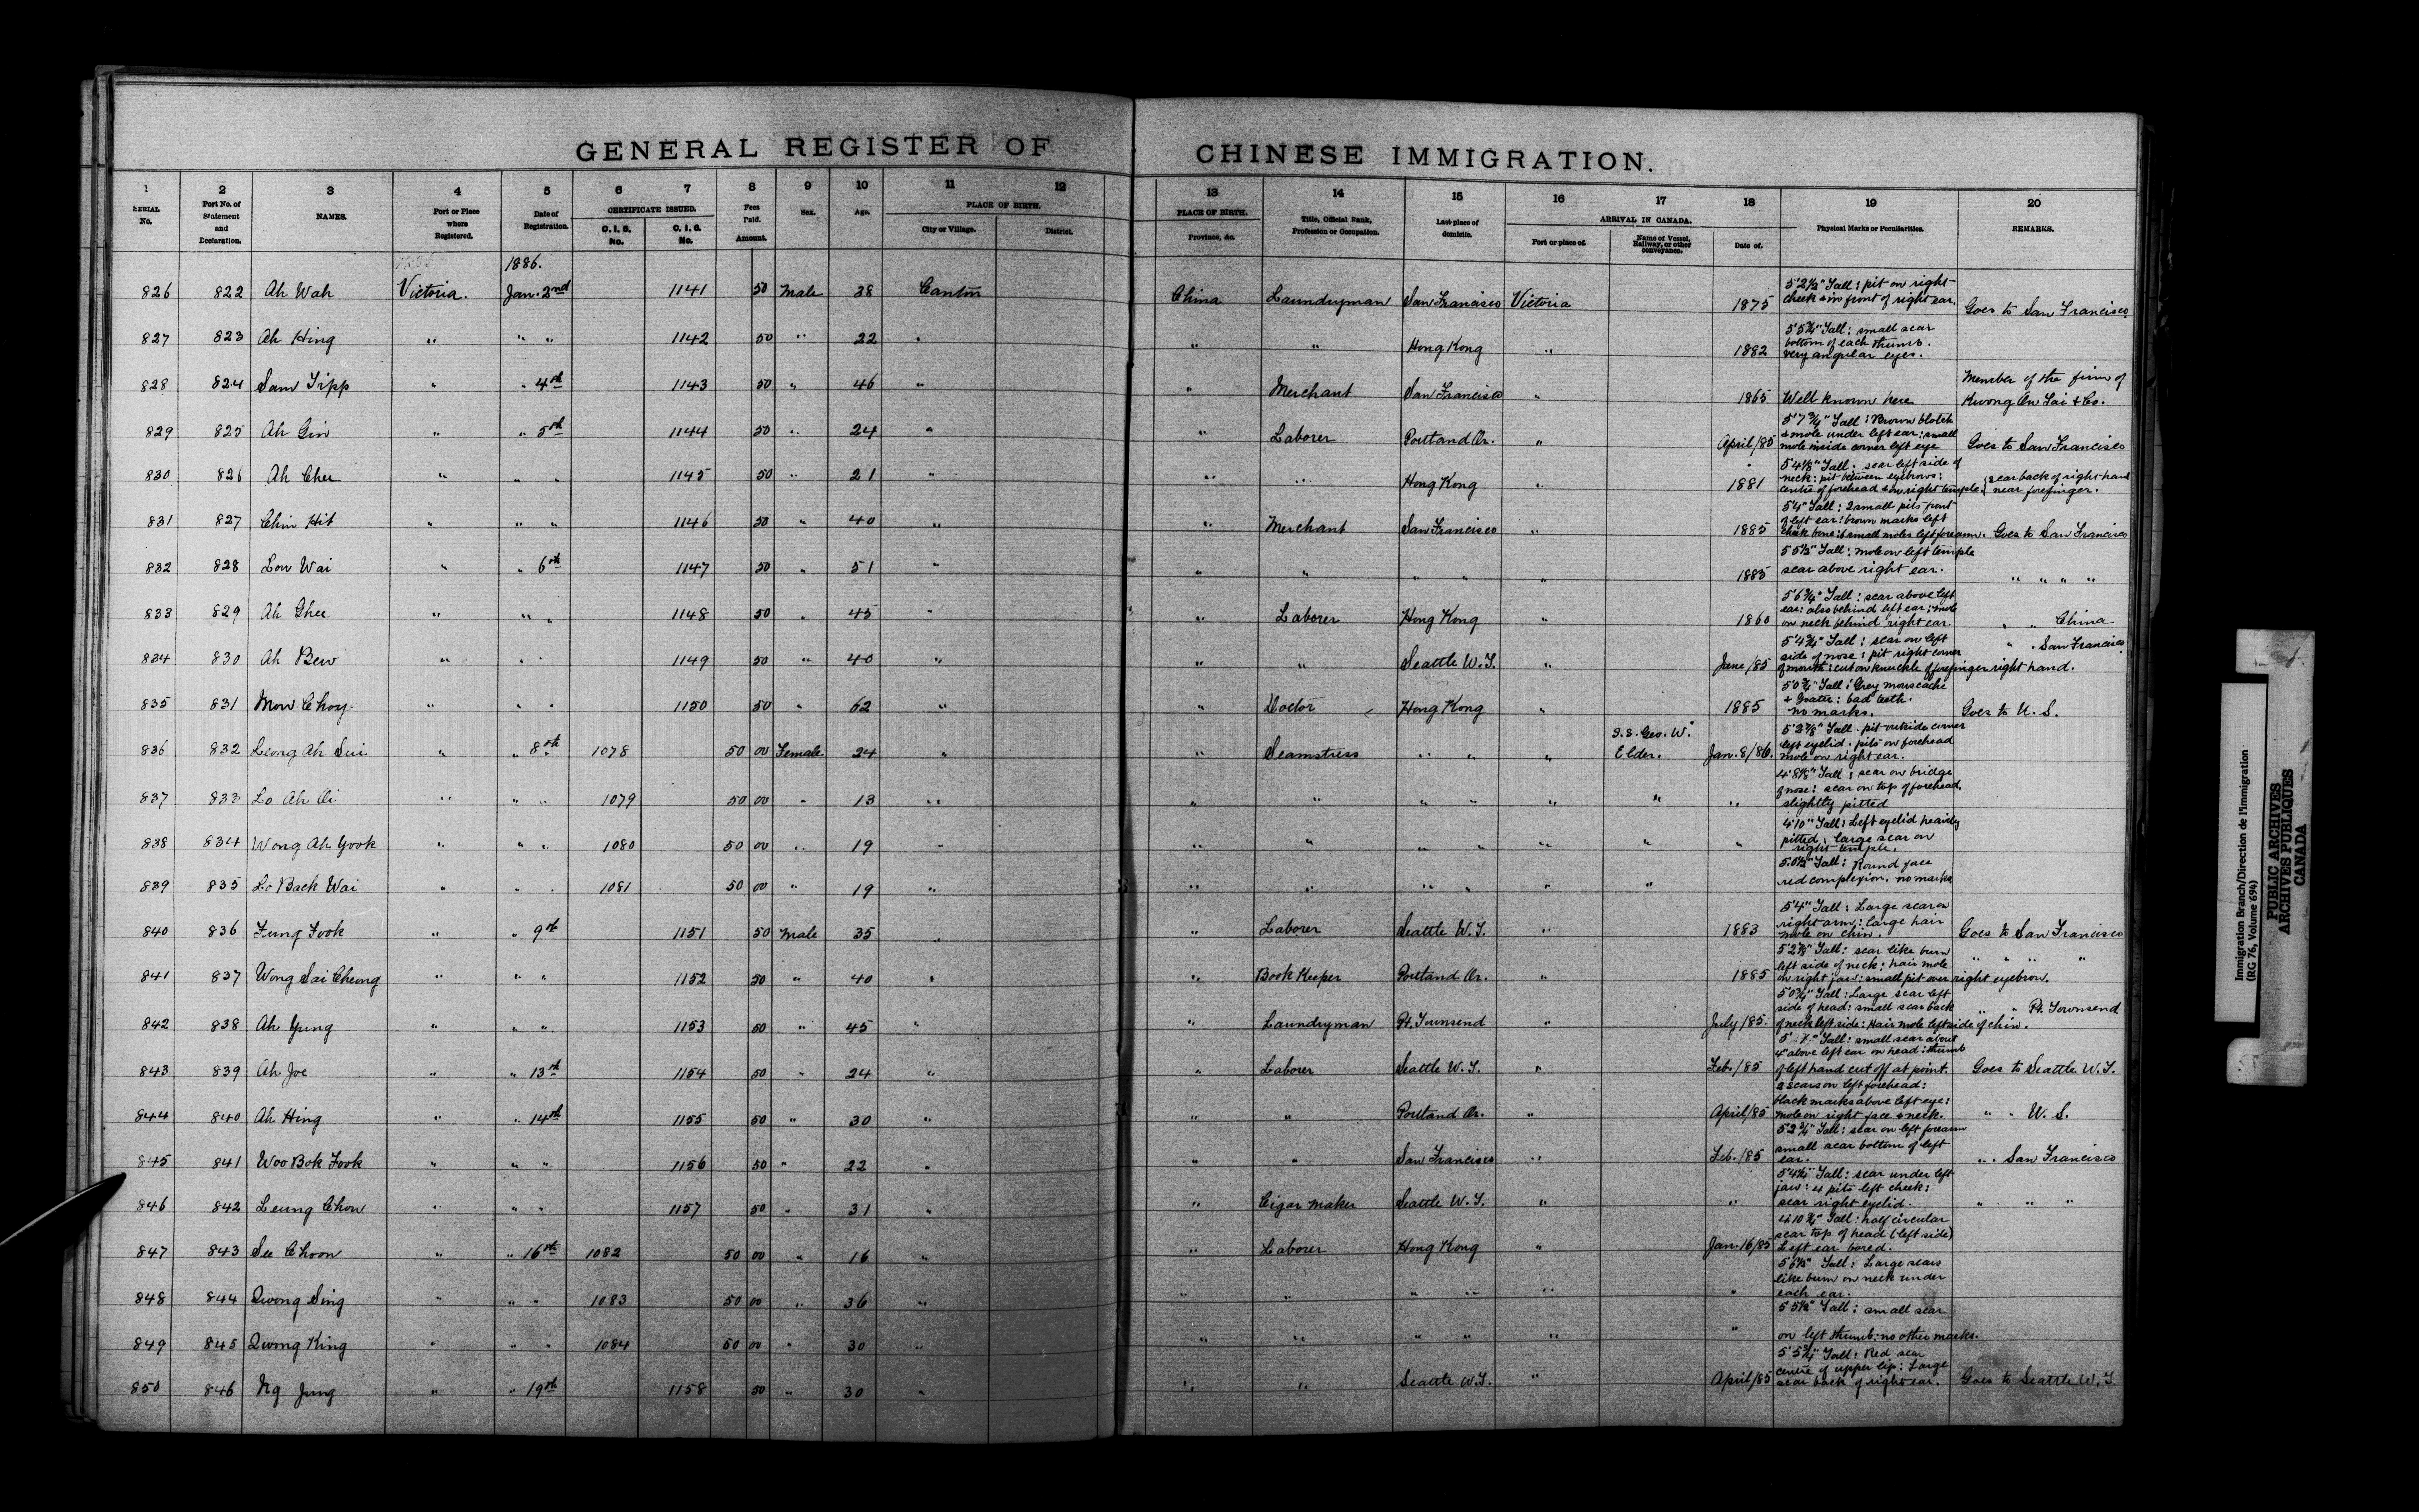 GENERAL REGISTER OF CHINESE IMMIGRATION.
1 2 3 4 5 6 7 8 9 10 11 12 13 14 15 16 17 18 19 20
SERIAL No. Port No. of Statement and Declaration. NAMES. Port or Place where Registered. Date of Registration. CERTIFICATE ISSUED. C. I. 5. No. C. I. 6. No. Fees Paid. Amount. Sex. Age. PLACE OF BIRTH. City or Village. District. PLACE OF BIRTH. Province, &c. Title, Official Rank, Profession or Occupation. Last place of domicile. ARRIVAL IN CANADA. Port or place of. Name of Vessel, Railway, or other conveyance. Date of. Physical Marks or Peculiarities. REMARKS.
1886.
826 822 Ah Wah Victoria. Jan. 2nd 1141 50 Male 38 Canton China Laundryman San Francisco Victoria 1875 5'2½" Tall: pit on right cheek & in front of right ear. Goes to San Francisco
827 823 Ah Hing " " " 1142 50 " 22 " " " Hong Kong " 1882 5'5¾" Tall: small scar bottom of each thumb. very angular eyes.
828 824 Sam Tipp " " 4th 1143 50 " 46 " " Merchant San Francisco " 1865 Well known here Member of the firm of Kwong On Tai & Co.
829 825 Ah Gin " " 5th 1144 50 " 24 " " Laborer Portland Or. " April/85 5'7¾" Tall: Brown blotch & mole under left ear: small mole inside corner left eye Goes to San Francisco
830 826 Ah Chee " " " 1145 50 " 21 " " " Hong Kong " 1881 5'4⅝" Tall: scar left side of neck: pit between eyebrows: centre of forehead & on right temple: scar back of right hand near forefinger.
831 827 Chin Hit " " " 1146 50 " 40 " " Merchant San Francisco " 1885 5'4" Tall: 2 small pits front of left ear: brown marks left cheek bone: 6 small moles left forearm. Goes to San Francisco
832 828 Low Wai " " 6th 1147 50 " 51 " " " " " " 1885 5'5½" Tall: mole on left temple scar above right ear. " " " "
833 829 Ah Ghee " " " 1148 50 " 45 " " Laborer Hong Kong " 1860 5'6¾" Tall: scar above left ear: also behind left ear: mole on neck behind right ear. " " China
834 830 Ah Bew " " " 1149 50 " 40 " " " Seattle W.T. " June/85 5'4¾" Tall: scar on left side of nose: pit right corner of mouth: cut on knuckle of forefinger right hand. " " San Francisco
835 831 Mow Choy. " " " 1150 50 " 62 " " Doctor Hong Kong " 1885 5'0¾" Tall: Grey mouscache & Goatee: bad teeth. no marks. Goes to U. S.
836 832 Leong Ah Sui " " 8th 1078 50 00 Female 24 " " Seamstress " " " S.S. Geo. W. Elder. Jan. 8/86. 5'2⅞" Tall. pit outside corner left eyelid. pits on forehead mole on right ear.
837 833 Lo Ah Oi " " " 1079 50 00 " 13 " " " " " " " " 4'8⅝" Tall: scar on bridge of nose: scar on top of forehead. slightly pitted
838 834 Wong Ah Yook " " " 1080 50 00 " 19 " " " " " " " " 4'10" Tall: Left eyelid heavily pitted: large scar on right temple.
839 835 Le Back Wai " " " 1081 50 00 " 19 " " " " " " " 5'0½" Tall: Round face red complexion. no marks
840 836 Fung Fook " " 9th 1151 50 Male 35 " " Laborer Seattle W.T. " 1883 5'4" Tall: Large scar on right arm: large hair mole on chin. Goes to San Francisco
841 837 Wong Sai Cheong " " " 1152 50 " 40 " " Book Keeper Portland Or. " 1885 5'2⅝" Tall: scar like burn left side of neck: hair mole on right jaw: small pit over right eyebrow. " " " "
842 838 Ah Yung " " " 1153 50 " 45 " " Laundryman Pt. Townsend " July/85. 5'0¾" Tall: Large scar left side of head: small scar back of neck left side: Hair mole left side of chin. " " Pt. Townsend
843 839 Ah Joe " " 13th 1154 50 " 24 " " Laborer Seattle W.T. " Feb./85 Tall: small scar about 4" above left ear on head: thumb of left hand cut off at point. Goes to Seattle W.T.
844 840 Ah Hing " " 14th 1155 50 " 30 " " " Portland Or. " April/85 2 scars on left forehead: black marks above left eye: mole on right face & neck. " " U. S.
845 841 Woo Bok Fook " " " 1156 50 " 22 " " " San Francisco " Feb./85 5'2¾" Tall: scar on left forearm small scar bottom of left ear. " " San Francisco
846 842 Leung Chow " " " 1157 50 " 31 " " Cigar maker Seattle W.T. " " 5'4½" Tall: scar under left jaw: 4 pits left cheek: scar right eyelid. " " "
847 843 See Choon " " 16th 1082 50 00 " 16 " " Laborer Hong Kong " Jan. 16/85 4'10¾" Tall: half circular scar top of head (left side) Left ear bored.
848 844 Quong Sing " " " 1083 50 00 " 36 " " " " " " " 5'6½" Tall: Large scars like burn on neck under each ear.
849 845 Quong King " " " 1084 50 00 " 30 " " " " " " " 5'5½" Tall: small scar on left thumb: no other marks.
850 846 Ng Jung " " 19th 1158 50 " 30 " " " Seattle W.T. " April/85 5'5¾" Tall: Red scar centre of upper lip: Large scar back of right ear. Goes to Seattle W.T.
Immigration Branch/Direction de l'immigration
(RG 76, Volume 694)
PUBLIC ARCHIVES
ARCHIVES PUBLIQUES
CANADA